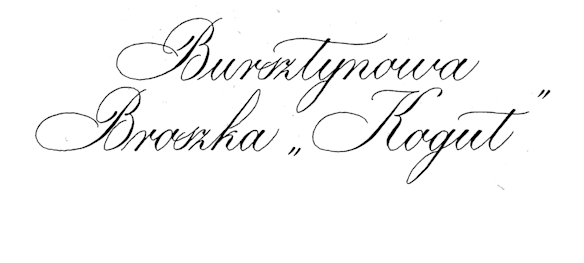 Bursztynowa
Broszka „Kogut”